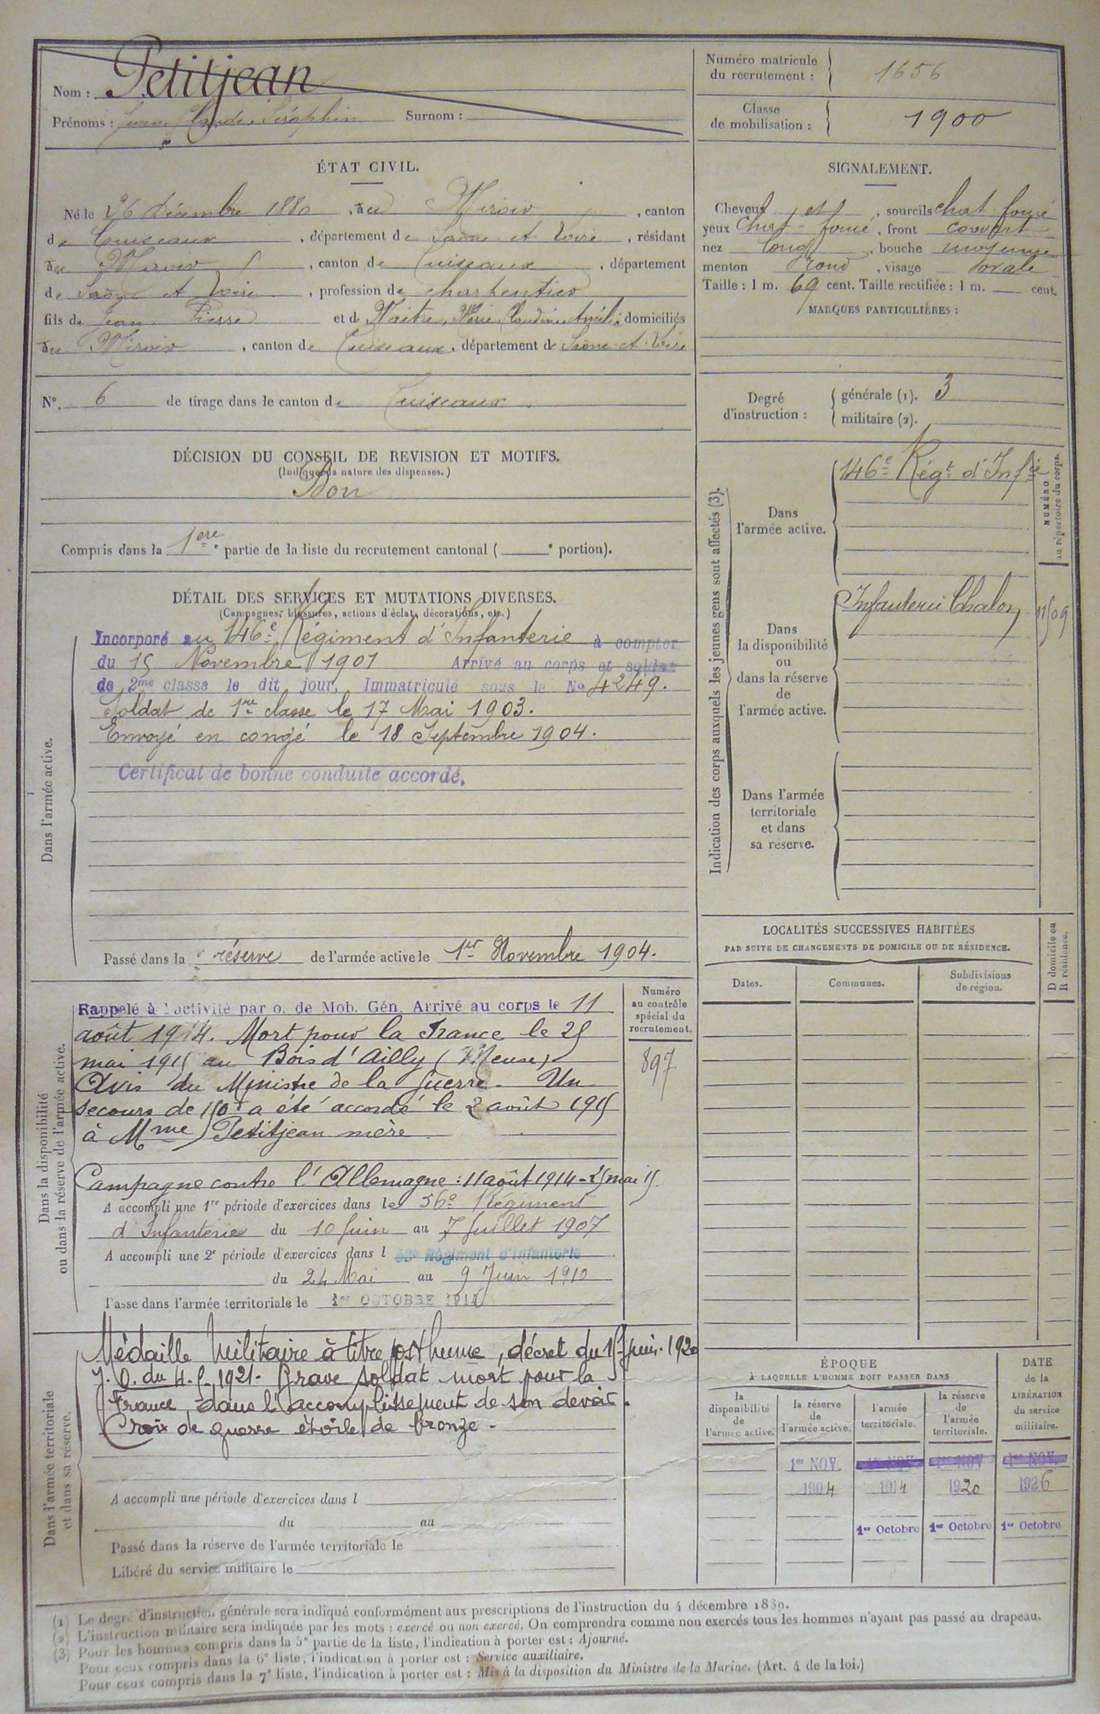 Nom : Petitjean
Prénoms : Jean Claude Séraphin Surnom :
Numéro matricule
du recrutement : 1656
Classe
de mobilisation : 1900
ÉTAT CIVIL.
Né le 26 décembre 1880, à Miroir, canton
de Cuiseaux, département de Saône et Loire, résidant
au Miroir, canton de Cuiseaux, département
de Saône et Loire, profession de charpentier
fils de Jean Pierre et de Maitre, Marie Claudine domiciliés
au Miroir, canton de Cuiseaux, département de Saône-et-Loire
No. 6 de tirage dans le canton de Cuiseaux.
SIGNALEMENT.
Cheveux et, sourcils chat. foncé
yeux chat-foncé, front couvert
nez long, bouche moyenne
menton rond, visage ovale
Taille : 1 m. 69 cent. Taille rectifiée : 1 m. cent.
MARQUES PARTICULIÈRES :
Degré
d'instruction :
générale (1). 3
militaire (2).
DÉCISION DU CONSEIL DE REVISION ET MOTIFS.
(Indiquer la nature des dispenses.)
Bon
Compris dans la 1ere partie de la liste du recrutement cantonal ( e portion).
DÉTAIL DES SERVICES ET MUTATIONS DIVERSES.
(Campagnes, blessures, actions d'éclat, décorations, etc.)
Dans l'armée active.
Incorporé au 146e Régiment d'Infanterie à compter
du 15 Novembre 1901 Arrivé au corps et soldat
de 2me classe le dit jour. Immatriculé sous le No 4249.
Soldat de 1re classe le 17 Mai 1903.
Envoyé en congé le 18 Septembre 1904.
Certificat de bonne conduite accordé.
Passé dans la réserve de l'armée active le 1er Novembre 1904.
Indication des corps auxquels les jeunes gens sont affectés (3).
Dans
l'armée active.
146e Régt d'Infie
NUMÉRO
au répertoire du corps.
Dans
la disponibilité
ou
dans la réserve
de
l'armée active.
Infanterie Chalon
Dans l'armée
territoriale
et dans
sa réserve.
LOCALITÉS SUCCESSIVES HABITÉES
PAR SUITE DE CHANGEMENTS DE DOMICILE OU DE RÉSIDENCE.
Dates.
Communes.
Subdivisions
de région.
D domicile ou
R résidence.
Dans la disponibilité
ou dans la réserve de l'armée active.
Numéro
au contrôle
spécial du
recrutement.
897
Rappelé à l'activité par o. de Mob. Gén. Arrivé au corps le 11
août 1914. Mort pour la France le 25
mai 1915 au Bois d'Ailly (Meuse)
Avis du Ministre de la Guerre. Un
secours de 150f a été accordé le 2 août 1915
à Mme Petitjean mère
Campagne contre l'Allemagne : 11 août 1914 - 25 mai 15
A accompli une 1re période d'exercices dans le 56e Régiment
d'Infanterie du 10 Juin au 7 Juillet 1907
A accompli une 2e période d'exercices dans l Régiment d'Infanterie
du 24 Mai au 9 Juin 1910
Passé dans l'armée territoriale le 1er OCTOBRE 1914
Dans l'armée territoriale
et dans sa réserve.
Médaille Militaire à titre posthume, décret du 15 juin 1920
J. O. du 1921. Brave soldat mort pour la
France, dans l'accomplissement de son devoir.
Croix de guerre étoile de bronze.
A accompli une période d'exercices dans l
du au
Passé dans la réserve de l'armée territoriale le
Libéré du service militaire le
ÉPOQUE
À LAQUELLE L'HOMME DOIT PASSER DANS
DATE
de la
LIBÉRATION
du service
militaire.
la
disponibilité
de
l'armée active.
la réserve
de
l'armée active.
l'armée
territoriale.
la réserve
de
l'armée
territoriale.
1er NOV. 1er NOV. 1er NOV 1er NOV.
1904 1914 1920 1926
1er Octobre 1er Octobre 1er Octobre
(1) Le degré d'instruction générale sera indiqué conformément aux prescriptions de l'instruction du 4 décembre 1889.
(2) L'instruction militaire sera indiquée par les mots : exercé ou non exercé. On comprendra comme non exercés tous les hommes n'ayant pas passé au drapeau.
(3) Pour les hommes compris dans la 5e partie de la liste, l'indication à porter est : Ajourné.
Pour ceux compris dans la 6e liste, l'indication à porter est : Service auxiliaire.
Pour ceux compris dans la 7e liste, l'indication à porter est : Mis à la disposition du Ministre de la Marine. (Art. 4 de la loi.)